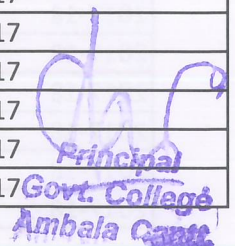 17
17
17
17
17
Principal
17
Govt. College
Ambala Cantt